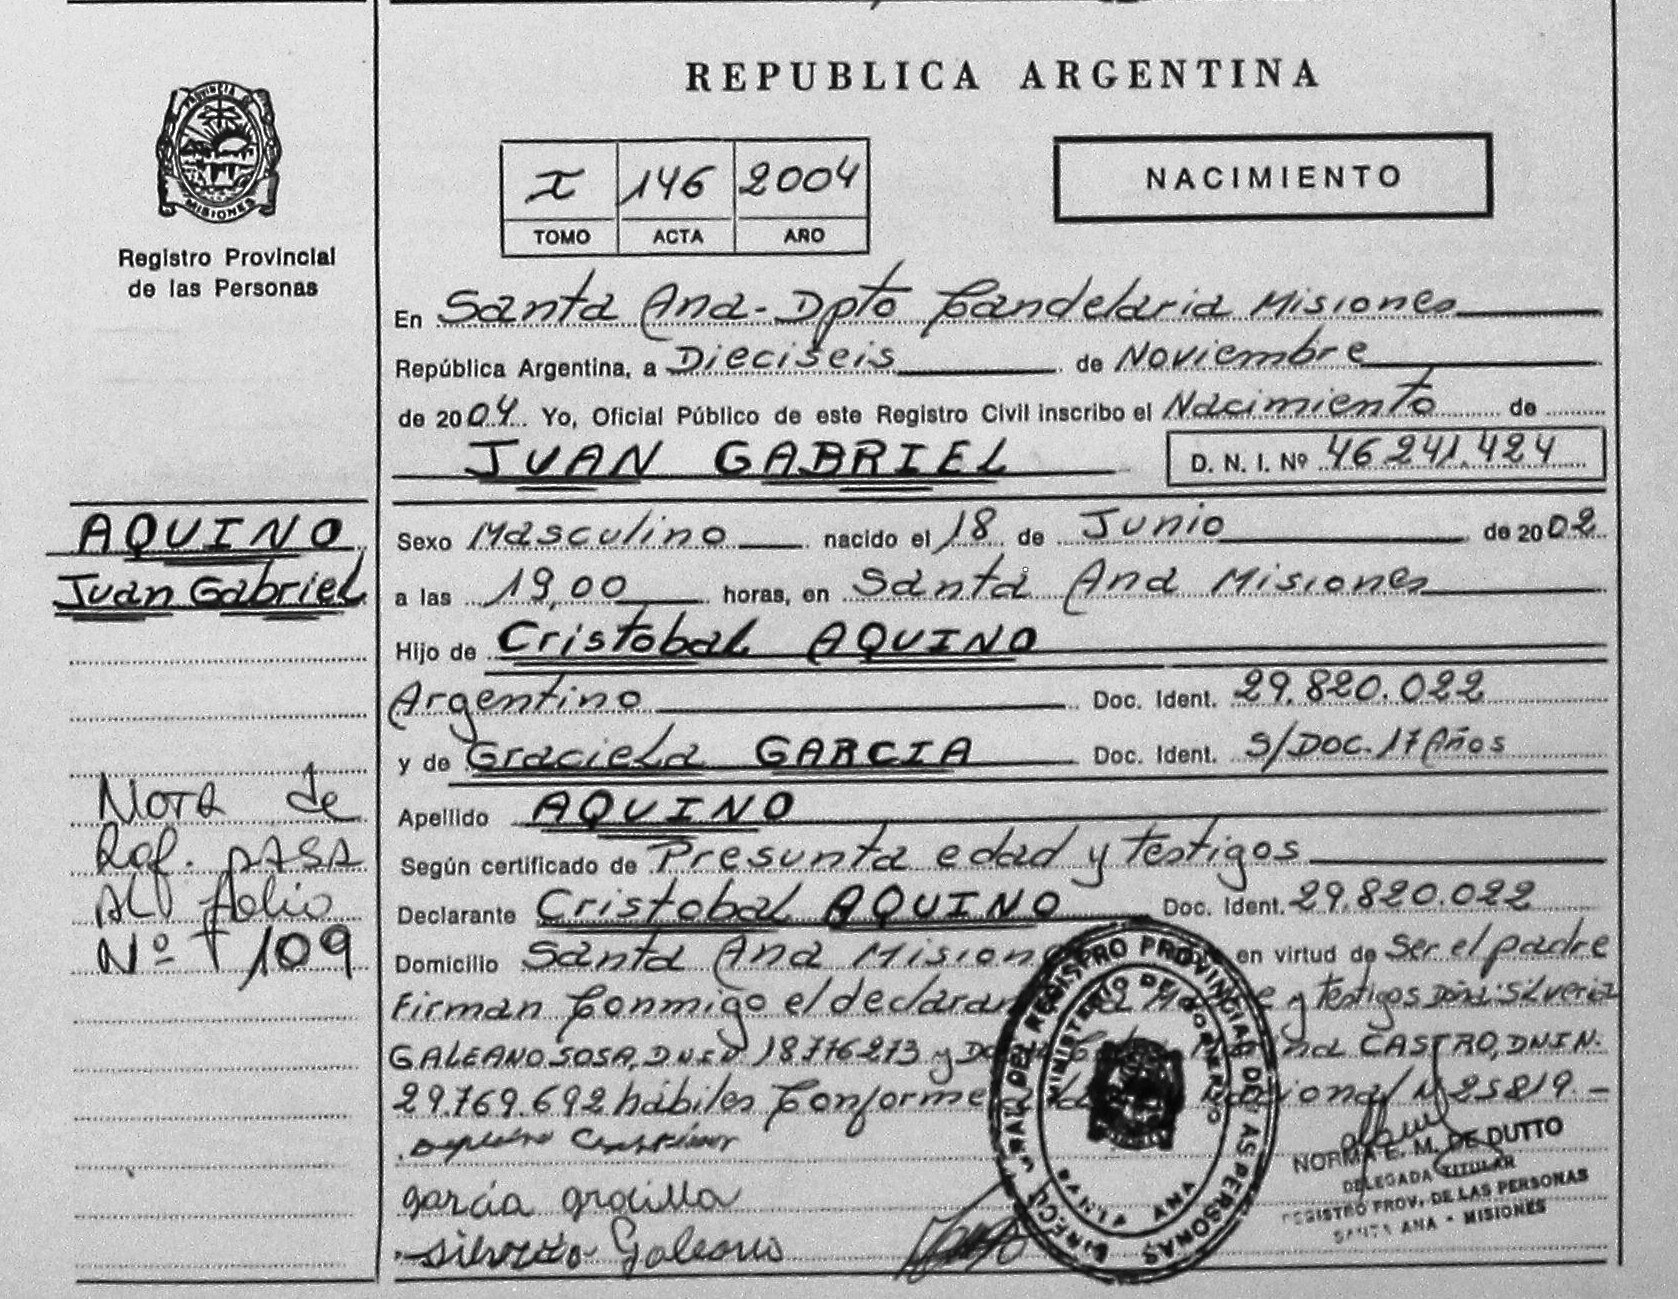 REPUBLICA ARGENTINA
PROVINCIA DE
MISIONES
Registro Provincial
de las Personas
I 146 2004
TOMO ACTA AÑO
NACIMIENTO
En Santa Ana - Dpto Candelaria Misiones
República Argentina, a Dieciseis de Noviembre
de 2004. Yo, Oficial Público de este Registro Civil inscribo el Nacimiento de
JUAN GABRIEL D. N. I. Nº 46.241.424
AQUINO
Juan Gabriel
Sexo Masculino nacido el 18 de Junio de 2002
a las 19,00 horas, en Santa Ana Misiones
Hijo de Cristobal AQUINO
Argentino Doc. Ident. 29.820.022
y de Graciela GARCIA Doc. Ident. S/DOC. 17 Años
Apellido AQUINO
Según certificado de Presunta edad y testigos
Declarante Cristobal AQUINO Doc. Ident. 29.820.022
Domicilio Santa Ana Mision en virtud de Ser el padre
Firman Conmigo el declaran y testigos Doña: Silveria
GALEANO SOSA, D.N.I.N 18776273 y CASTRO, DNIN.
29.769.692 hábiles Conforme Nº 25819. -
Nota de
Ref. PASA
AL folio
Nº 109
garcia
Galeano
DEL REGISTRO PROVINCIAL DE LAS PERSONAS
MINISTERIO DE GOBIERNO
SANTA ANA
NORMA E. M. DE DUTTO
DELEGADA TITULAR
REGISTRO PROV. DE LAS PERSONAS
SANTA ANA - MISIONES